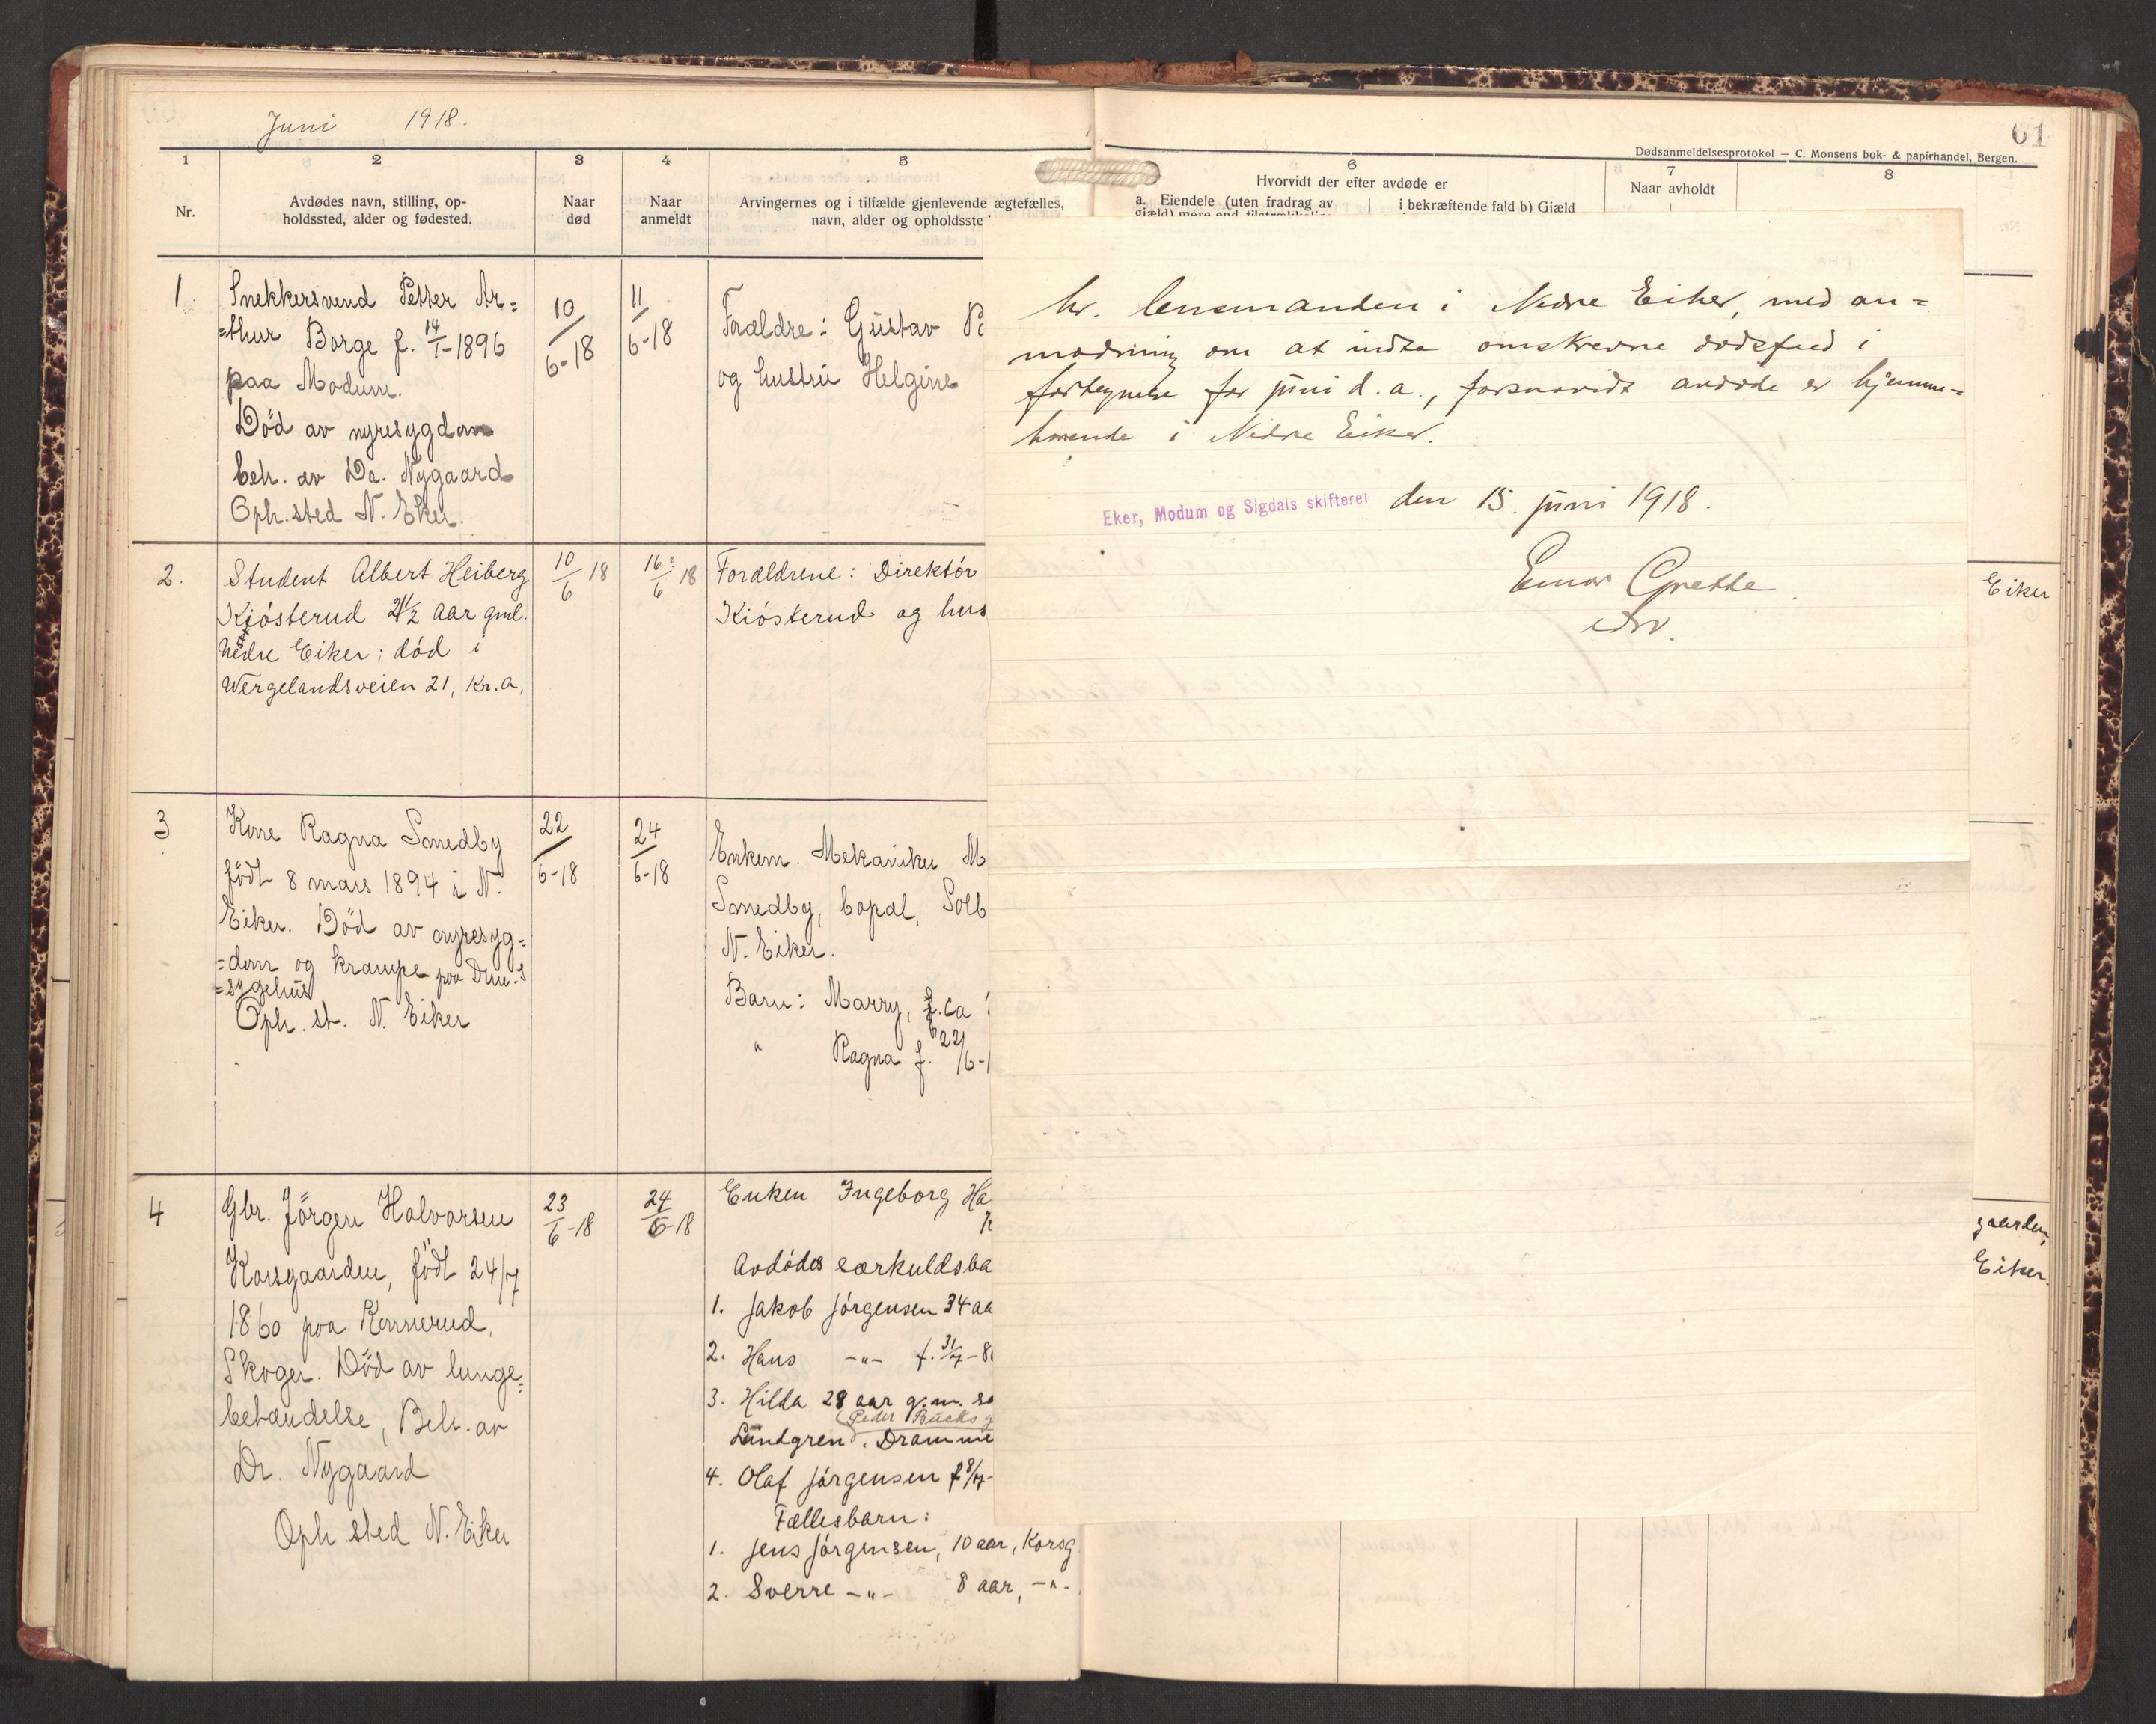 Juni 1918.
1
2
3
4
5
Nr.
Avdødes navn, stilling, op-
holdssted, alder og fødested.
Naar
død
Naar
anmeldt
Arvingernes og i tilfælde gjenlevende ægtefælles,
navn, alder og opholdsste
1
Snekkersvend Petter Ar=
=thur Borge f. 14/1-1896
paa Modum.
Död av nyresygdom
beh. av Dr. Nygaard
Oph.sted N. Eker.
10/6-18
11/6-18
Forældre: Gustav
og hustru Helgine
2.
Student Albert Heiberg
Kiøsterud 21½ aar gml.
Nedre Eiker; død i
Wergelandsveien 21, Kr.a,
10/6 18
16/6 18
Forældrene: Direktør
Kiøsterud og hus
3
Kone Ragna Smedby
födt 8 mars 1894 i N.
Eiker. Död av nyresyg=
=dom og krampe paa Dm.s
=sygehus
Oph. st. N. Eiker
22/6-18
24/6-18
Enkem. Mekaniker M
Smedby, bopæl, Solb
N. Eiker.
Barn: Marry, f. ca
" Ragna f. 22/6-1
4
Gbr. Jörgen Halvorsen
Korsgaarden, födt 24/7
1860 paa Konnerud,
Skoger. Död av lunge=
betændelse, Beh. av
Dr. Nygaard
Oph sted N. Eiker
23/6-18
24/6-18
Enken Ingeborg Ha
Avdødes særkuldsba
1. Jakob Jørgensen 34 aa
2. Hans -"- f. 31/7-8
3. Hilda 28 aar g.m. sa
(Peder Bucks g
Lundgren, Dramme
4. Olaf Jørgensen f 8/7-
Fællesbarn:
1. Jens Jørgensen, 10 aar, Korsg
2. Sverre -"- 8 aar, -"-
61
Dødsanmeldelsesprotokol — C. Monsens bok- & papirhandel, Bergen.
6
7
8
Hvorvidt der efter avdøde er
a. Eiendele (uten fradrag av
gjæld) mere end tilstrækkelig
i bekræftende fald b) Gjæld
Naar avholdt
hr. lensmanden i Nedre Eiker, med an=
modning om at indta omskrevne dødsfald i
fortegnelse for juni d.a., forsaavidt avdøde er hjemme=
hørende i Nedre Eiker.
Eker, Modum og Sigdals skifteret den 15. juni 1918.
Einar Grette
Eiker
gaarden,
Eiker.